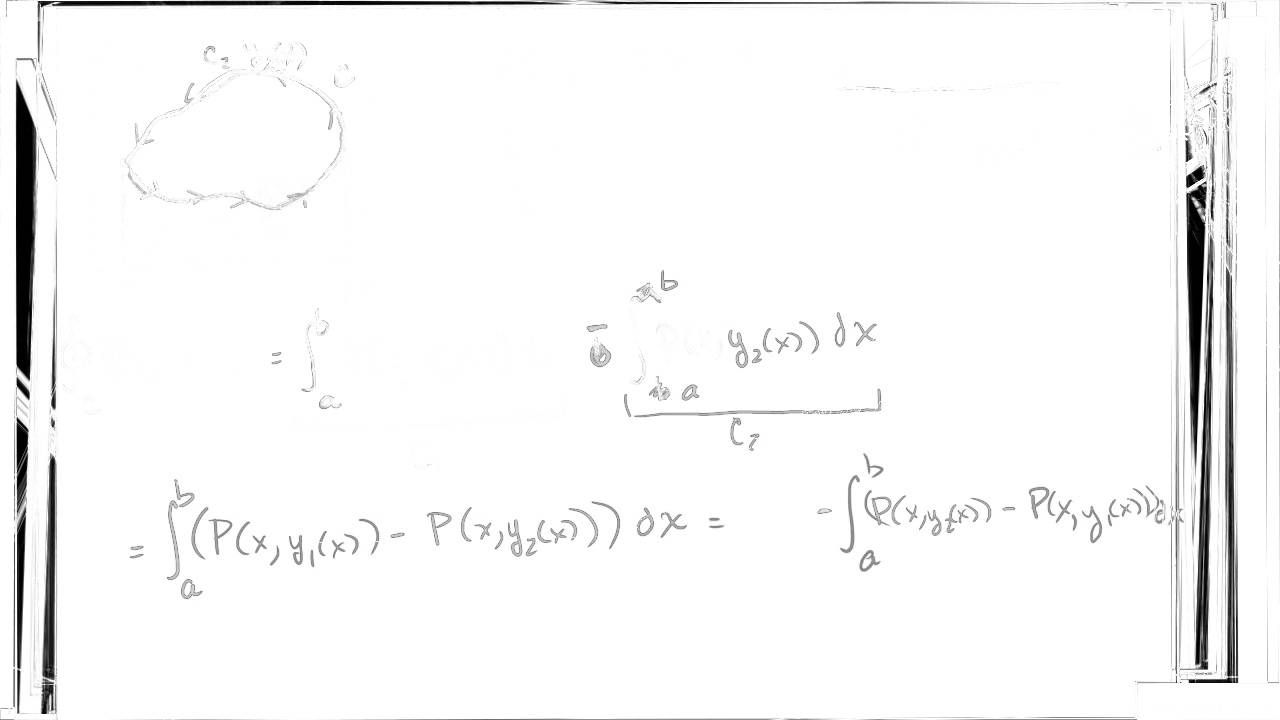 C₂ y₂(x) C
= ∫ₐᵇ - ∫ₐᵇ P(x, y₂(x)) dx
C₂
= ∫ₐᵇ (P(x, y₁(x)) - P(x, y₂(x))) dx = - ∫ₐᵇ (P(x, y₂(x)) - P(x, y₁(x))) dx